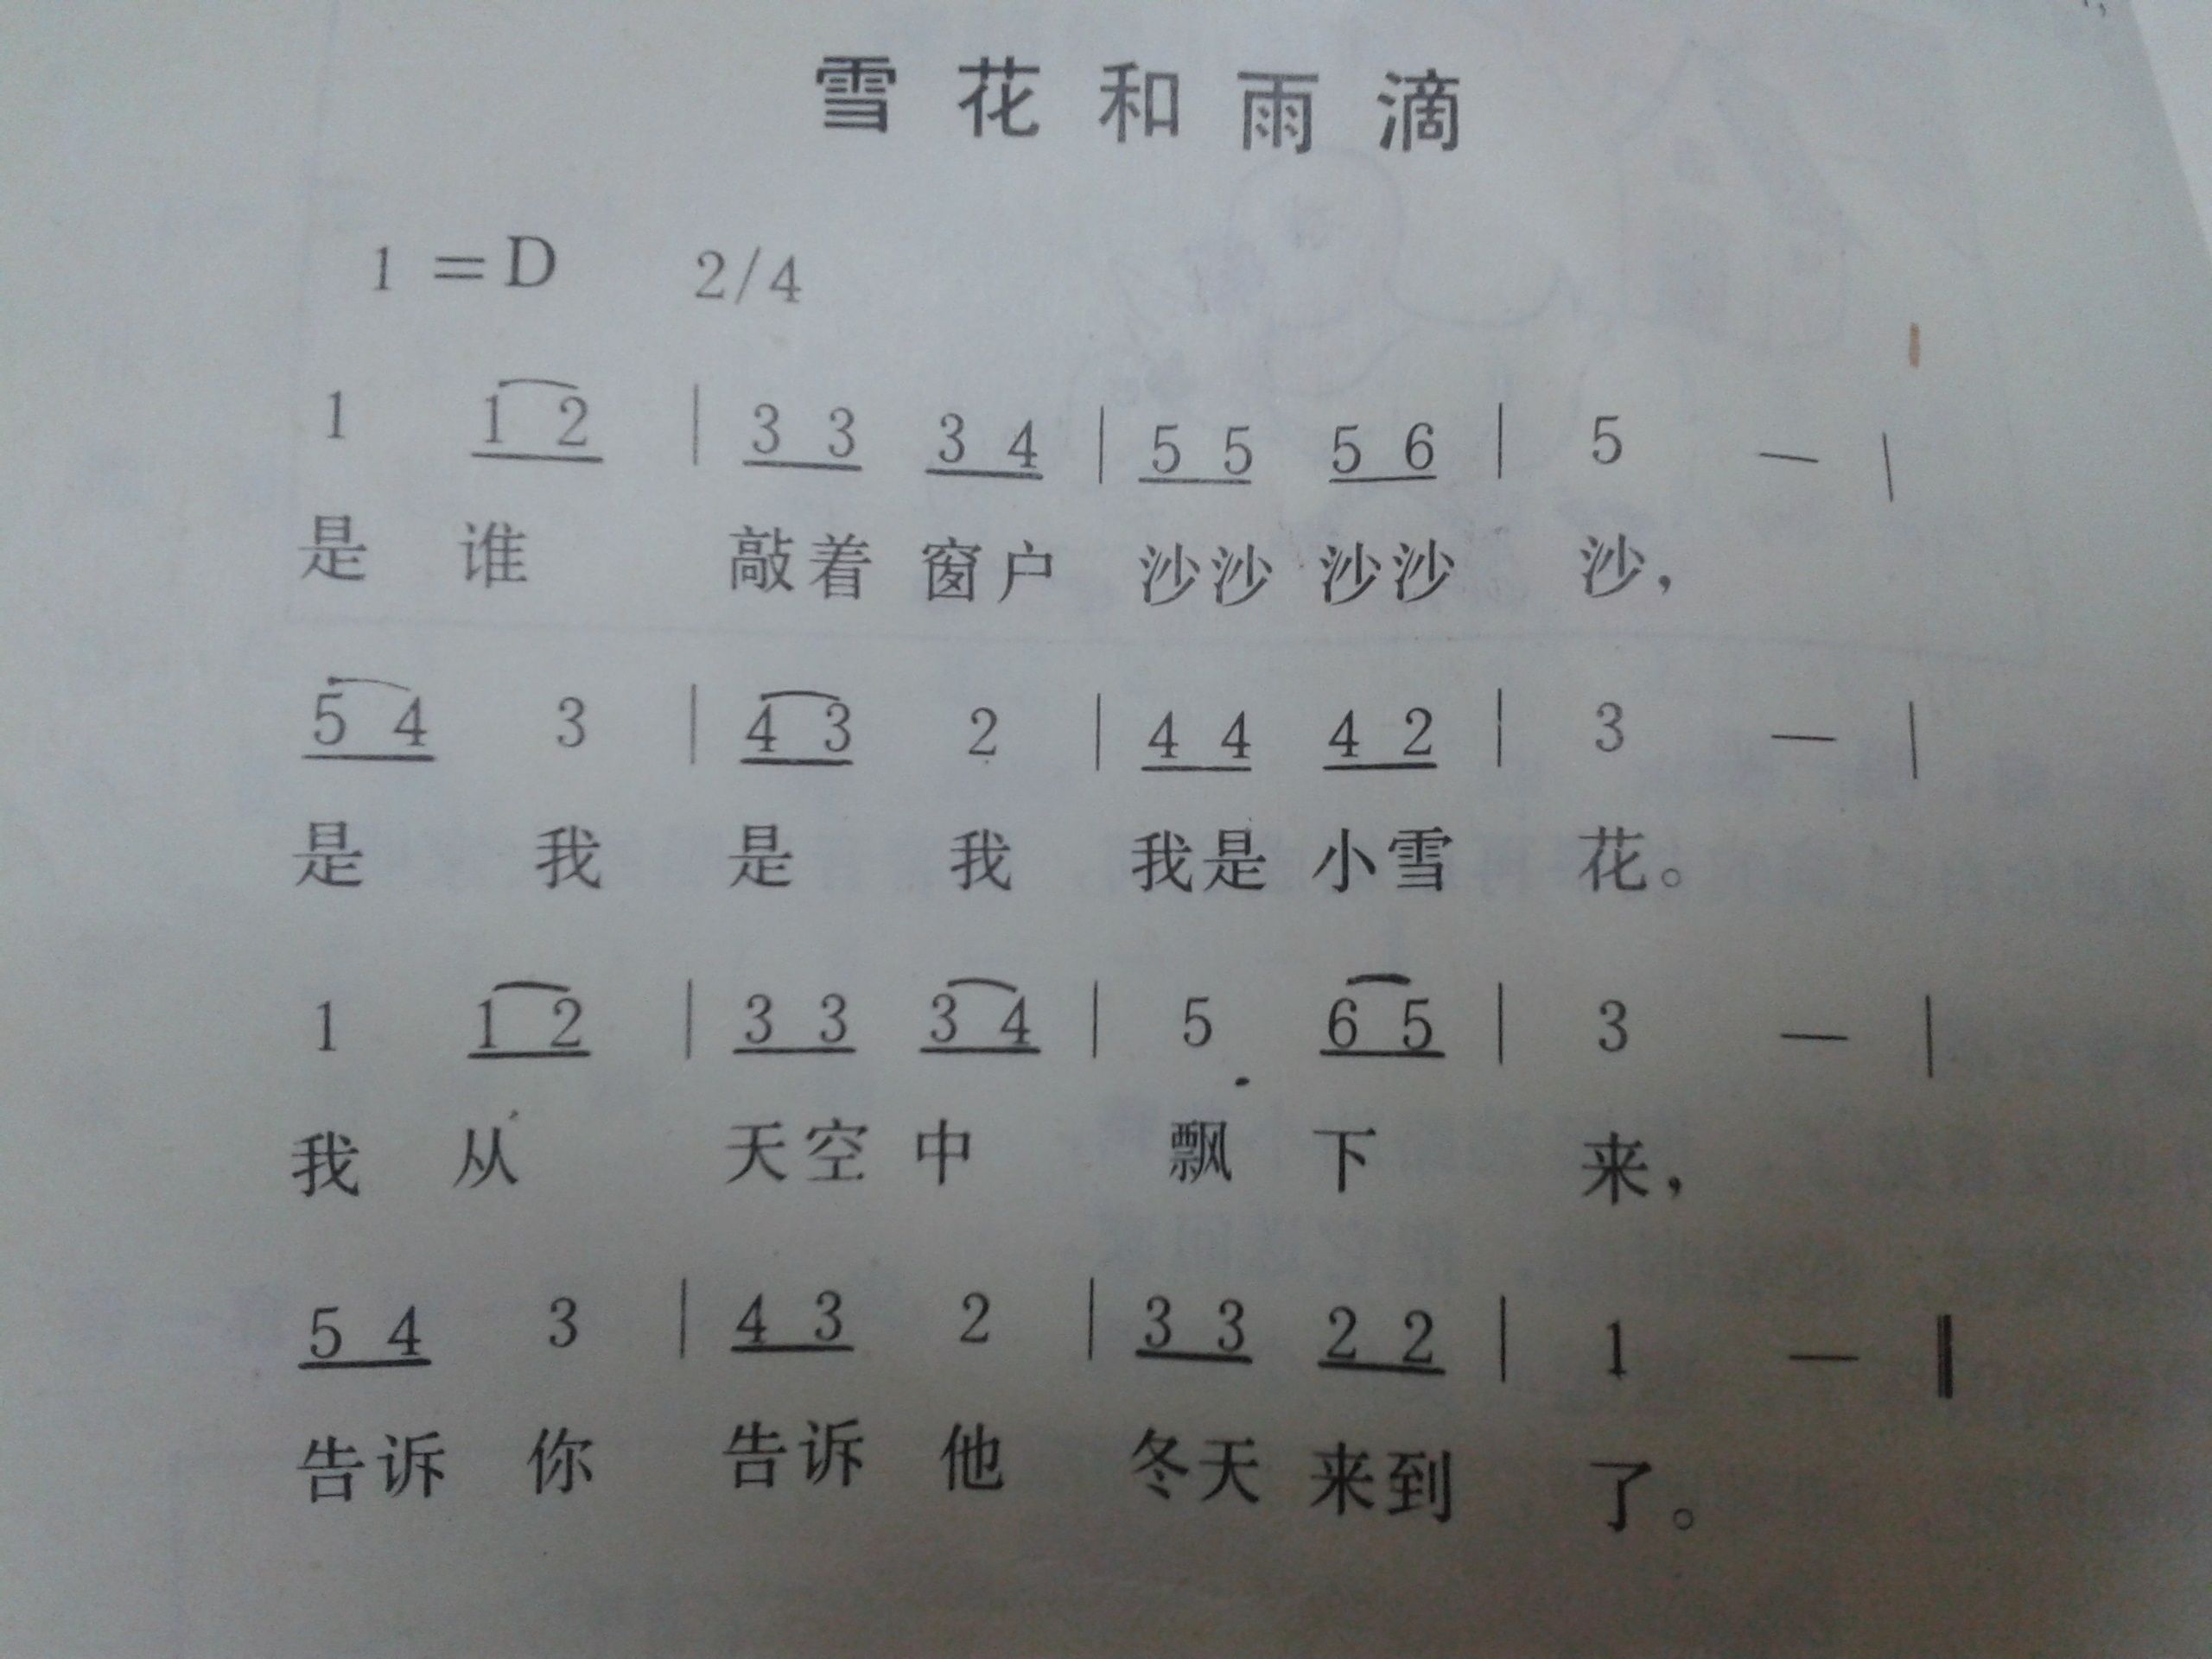 雪花和雨滴
1=D 2/4
1 1 2 | 3 3 3 4 | 5 5 5 6 | 5 — |
是 谁 敲着 窗户 沙沙 沙沙 沙，
5 4 3 | 4 3 2 | 4 4 4 2 | 3 — |
是 我 是 我 我是 小雪 花。
1 1 2 | 3 3 3 4 | 5 6 5 | 3 — |
我 从 天空 中 飘 下 来，
5 4 3 | 4 3 2 | 3 3 2 2 | 1 — ‖
告诉 你 告诉 他 冬天 来到 了。